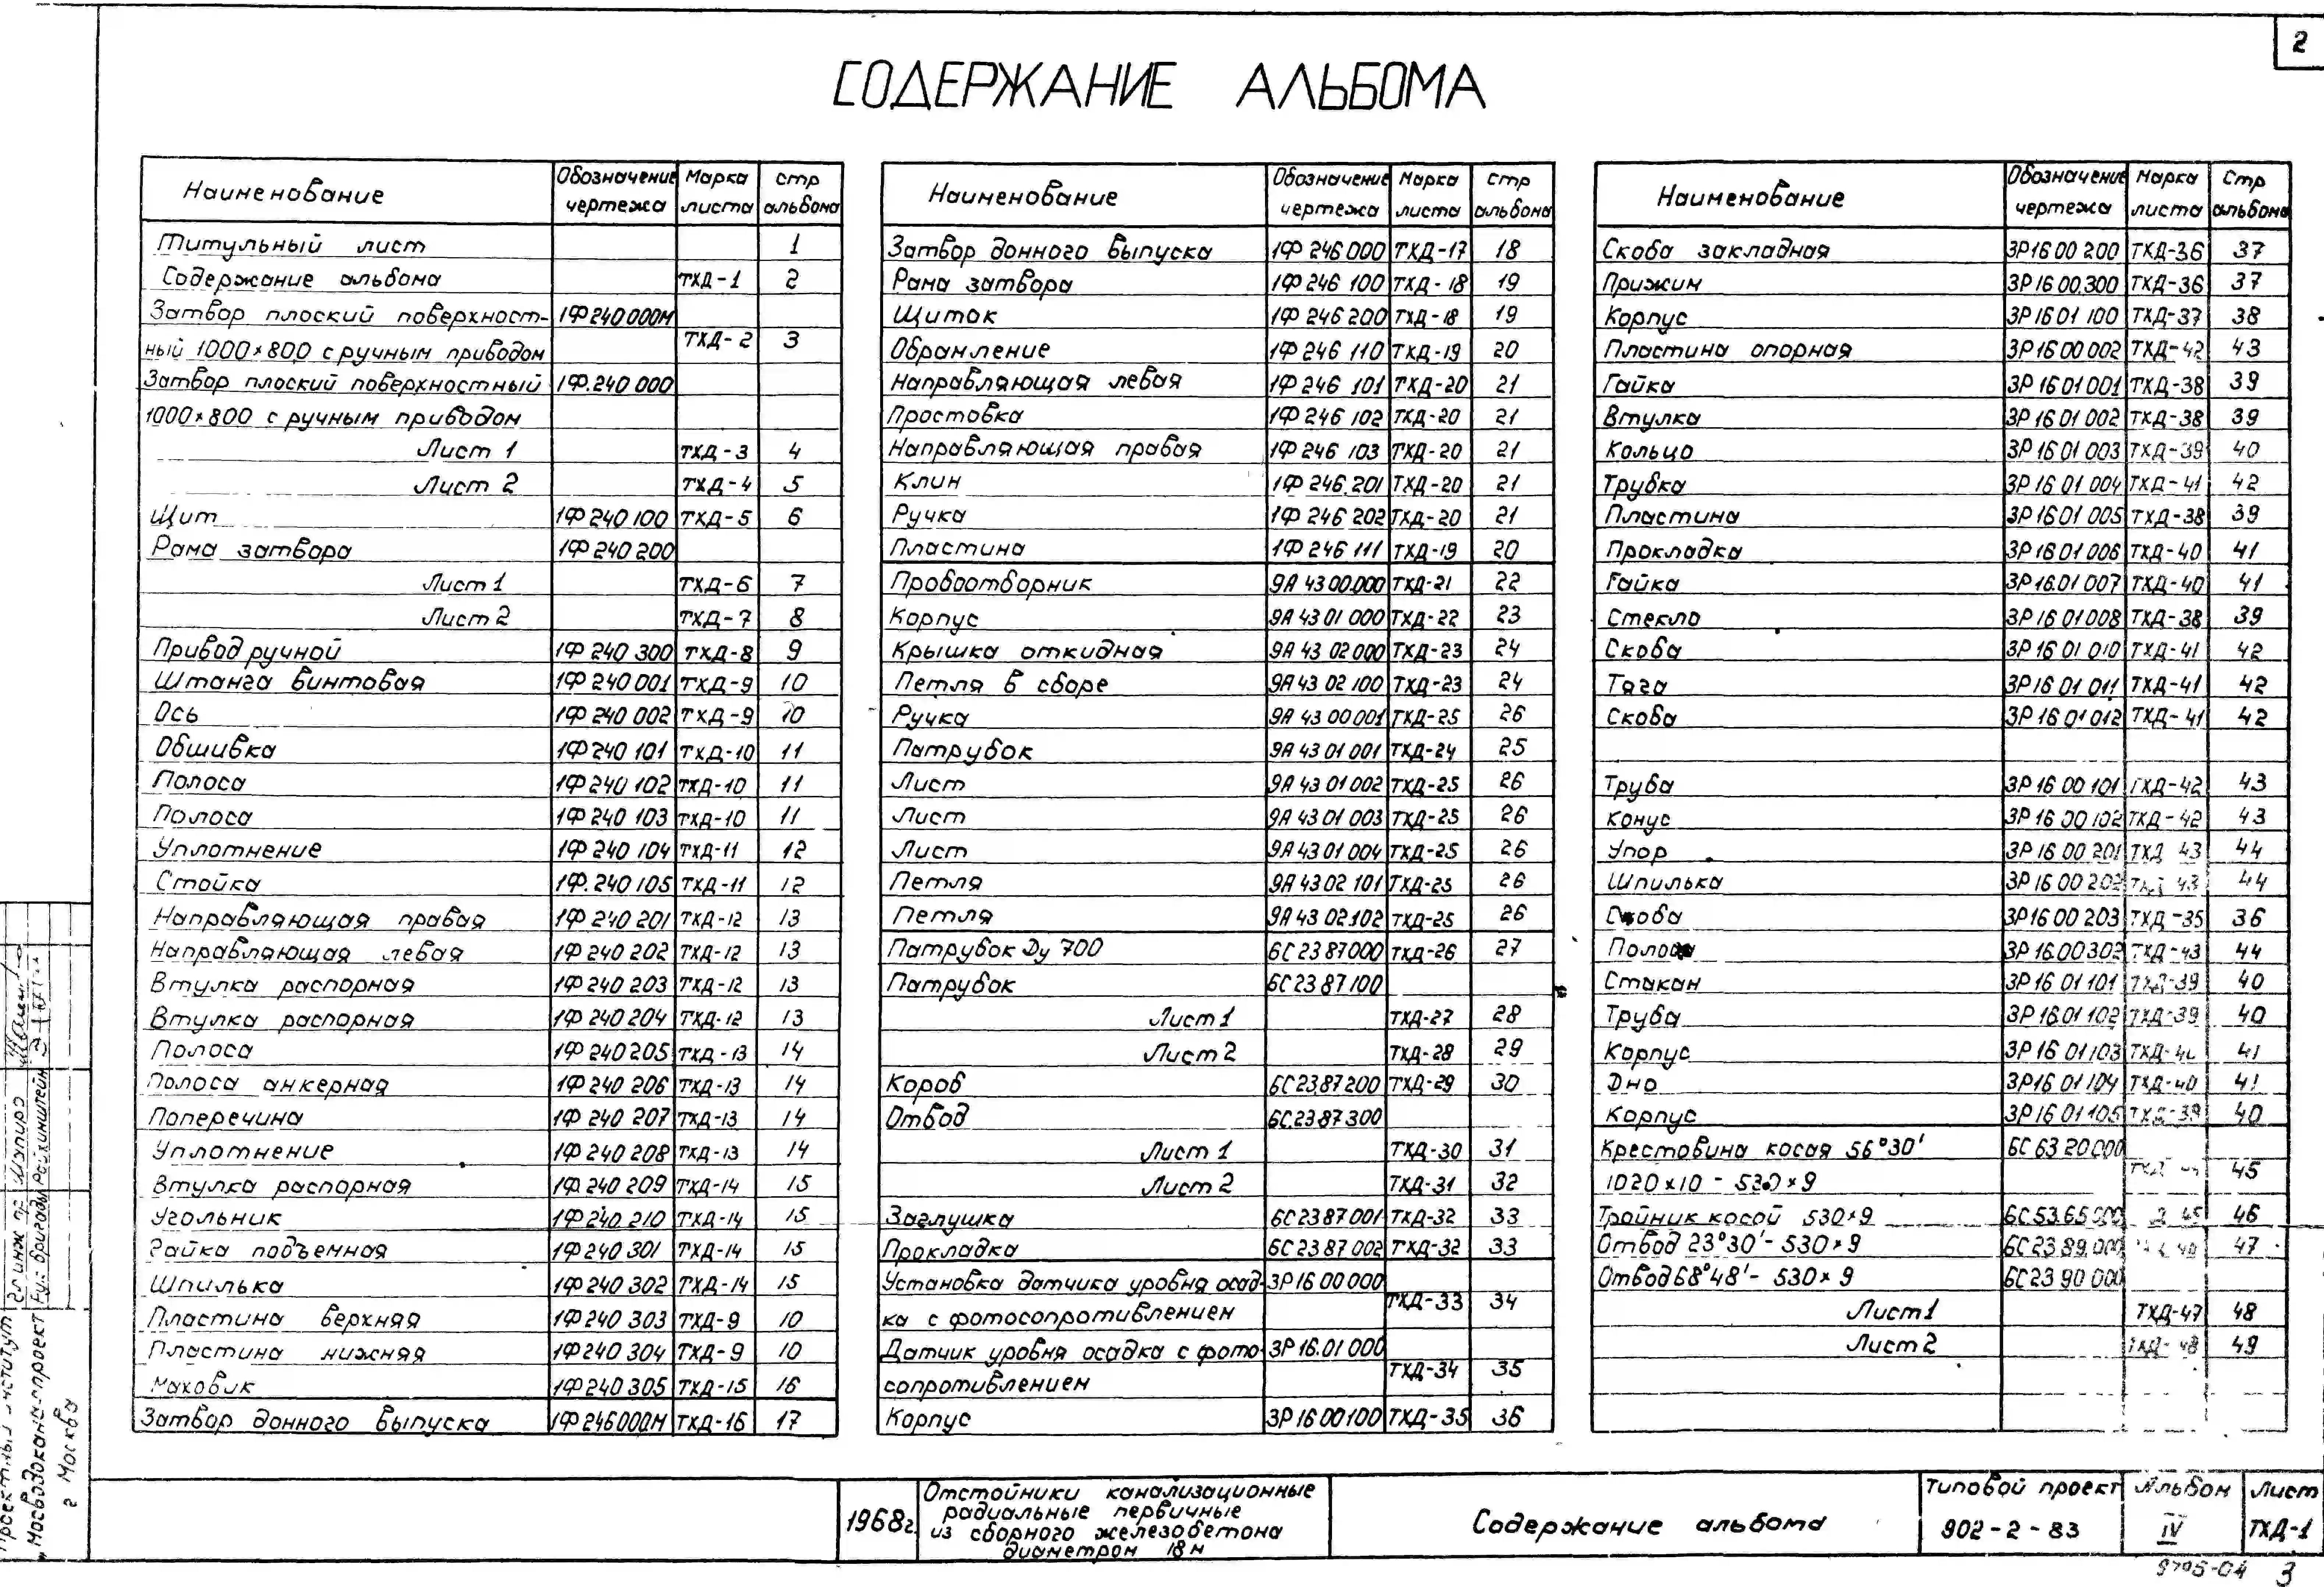 2
СОДЕРЖАНИЕ АЛЬБОМА
Наименование Обозначение чертежа Марка листа Стр альбома
Титульный лист 1
Содержание альбома ТХД-1 2
Затвор плоский поверхност- 1Ф240000М
ный 1000×800 с ручным приводом ТХД-2 3
Затвор плоский поверхностный 1Ф.240 000
1000×800 с ручным приводом
Лист 1 ТХД-3 4
Лист 2 ТХД-4 5
Щит 1Ф240100 ТХД-5 6
Рама затвора 1Ф240 200
Лист 1 ТХД-6 7
Лист 2 ТХД-7 8
Привод ручной 1Ф 240 300 ТХД-8 9
Штанга винтовая 1Ф240001 ТХД-9 10
Ось 1Ф 240 002 ТХД-9 10
Обшивка 1Ф240 101 ТХД-10 11
Полоса 1Ф240 102 ТХД-10 11
Полоса 1Ф240 103 ТХД-10 11
Уплотнение 1Ф 240 104 ТХД-11 12
Стойка 1Ф.240 105 ТХД-11 12
Направляющая правая 1Ф 240 201 ТХД-12 13
Направляющая левая 1Ф 240 202 ТХД-12 13
Втулка распорная 1Ф240 203 ТХД-12 13
Втулка распорная 1Ф 240 204 ТХД-12 13
Полоса 1Ф 240205 ТХД-13 14
Полоса анкерная 1Ф240 206 ТХД-13 14
Поперечина 1Ф 240 207 ТХД-13 14
Уплотнение 1Ф 240 208 ТХД-13 14
Втулка распорная 1Ф 240 209 ТХД-14 15
Угольник 1Ф240.210 ТХД-14 15
Гайка подъемная 1Ф240 301 ТХД-14 15
Шпилька 1Ф240 302 ТХД-14 15
Пластина верхняя 1Ф240 303 ТХД-9 10
Пластина нижняя 1Ф240 304 ТХД-9 10
Маховик 1Ф240 305 ТХД-15 16
Затвор донного выпуска 1Ф246000М ТХД-16 17
Наименование Обозначение чертежа Марка листа Стр альбома
Затвор донного выпуска 1Ф 246 000 ТХД-17 18
Рама затвора 1Ф 246 100 ТХД-18 19
Щиток 1Ф 246 200 ТХД-18 19
Обрамление 1Ф 246 110 ТХД-19 20
Направляющая левая 1Ф 246 101 ТХД-20 21
Простовка 1Ф 246 102 ТХД-20 21
Направляющая правая 1Ф 246 103 ТХД-20 21
Клин 1Ф 246.201 ТХД-20 21
Ручка 1Ф 246 202 ТХД-20 21
Пластина 1Ф 246 111 ТХД-19 20
Пробоотборник 9А 43 00.000 ТХД-21 22
Корпус 9А 43 01 000 ТХД-22 23
Крышка откидная 9А 43 02 000 ТХД-23 24
Петля в сборе 9А 43 02 100 ТХД-23 24
Ручка 9А 43 00 001 ТХД-25 26
Патрубок 9А 43 01 001 ТХД-24 25
Лист 9А 43 01 002 ТХД-25 26
Лист 9А 43 01 003 ТХД-25 26
Лист 9А 43 01 004 ТХД-25 26
Петля 9А 43 02 101 ТХД-25 26
Петля 9А 43 02.102 ТХД-25 26
Патрубок Ду 700 6С 23 87000 ТХД-26 27
Патрубок 6С 23 87 100
Лист 1 ТХД-27 28
Лист 2 ТХД-28 29
Короб 6С 23.87 200 ТХД-29 30
Отвод 6С.23.87 300
Лист 1 ТХД-30 31
Лист 2 ТХД-31 32
Заглушка 6С 23 87 001 ТХД-32 33
Прокладка 6С 23 87 002 ТХД-32 33
Установка датчика уровня осад- 3Р16 00 000
ка с фотосопротивлением ТХД-33 34
Датчик уровня осадка с фото- 3Р 16.01 000
сопротивлением ТХД-34 35
Корпус 3Р 16 00 100 ТХД-35 36
Наименование Обозначение чертежа Марка листа Стр альбома
Скоба закладная 3Р16 00 200 ТХД-36 37
Прижим 3Р 16 00.300 ТХД-36 37
Корпус 3Р 16 01 100 ТХД-37 38
Пластина опорная 3Р 16 00 002 ТХД-42 43
Гайка 3Р 16 01 001 ТХД-38 39
Втулка 3Р 16 01 002 ТХД-38 39
Кольцо 3Р 16 01 003 ТХД-39 40
Трубка 3Р 16 01 004 ТХД-41 42
Пластина 3Р 16 01 005 ТХД-38 39
Прокладка 3Р 16 01 006 ТХД-40 41
Гайка 3Р 16.01 007 ТХД-40 41
Стекло 3Р 16 01 008 ТХД-38 39
Скоба 3Р 16 01 010 ТХД-41 42
Тяга 3Р 16 01 011 ТХД-41 42
Скоба 3Р 16 01 012 ТХД-41 42
Труба 3Р 16 00 101 ТХД-42 43
Конус 3Р 16 00 102 ТХД-42 43
Упор 3Р 16 00 201 ТХД 43 44
Шпилька 3Р 16 00 202 ТХД 43 44
Скоба 3Р16 00 203 ТХД-35 36
Полоса 3Р 16.00302 ТХД-43 44
Стакан 3Р 16 01 101 ТХД-39 40
Труба 3Р 16 01 102 ТХД-39 40
Корпус 3Р 16 01 103 41
Дно 3Р16 01 104 ТХД-40 41
Корпус 3Р 16 01 105 ТХД-39 40
Крестовина косая 56°30' 6С 63 20.000
1020×10 - 530×9 45
Тройник косой 530×9 6С 53.65 000 46
Отвод 23°30' - 530×9 6С 23 89.000 47
Отвод 68°48' - 530×9 6С 23 90 000
Лист 1 ТХД-47 48
Лист 2 ТХД-48 49
Проектный институт
„Мосводоканалпроект
г Москва
Гл инж пр Шапиро
Рук бригады Райхинштейн
1968г.
Отстойники канализационные
радиальные первичные
из сборного железобетона
диаметром 18м
Содержание альбома
Типовой проект
902-2-83
Альбом
IV
Лист
ТХД-1
3